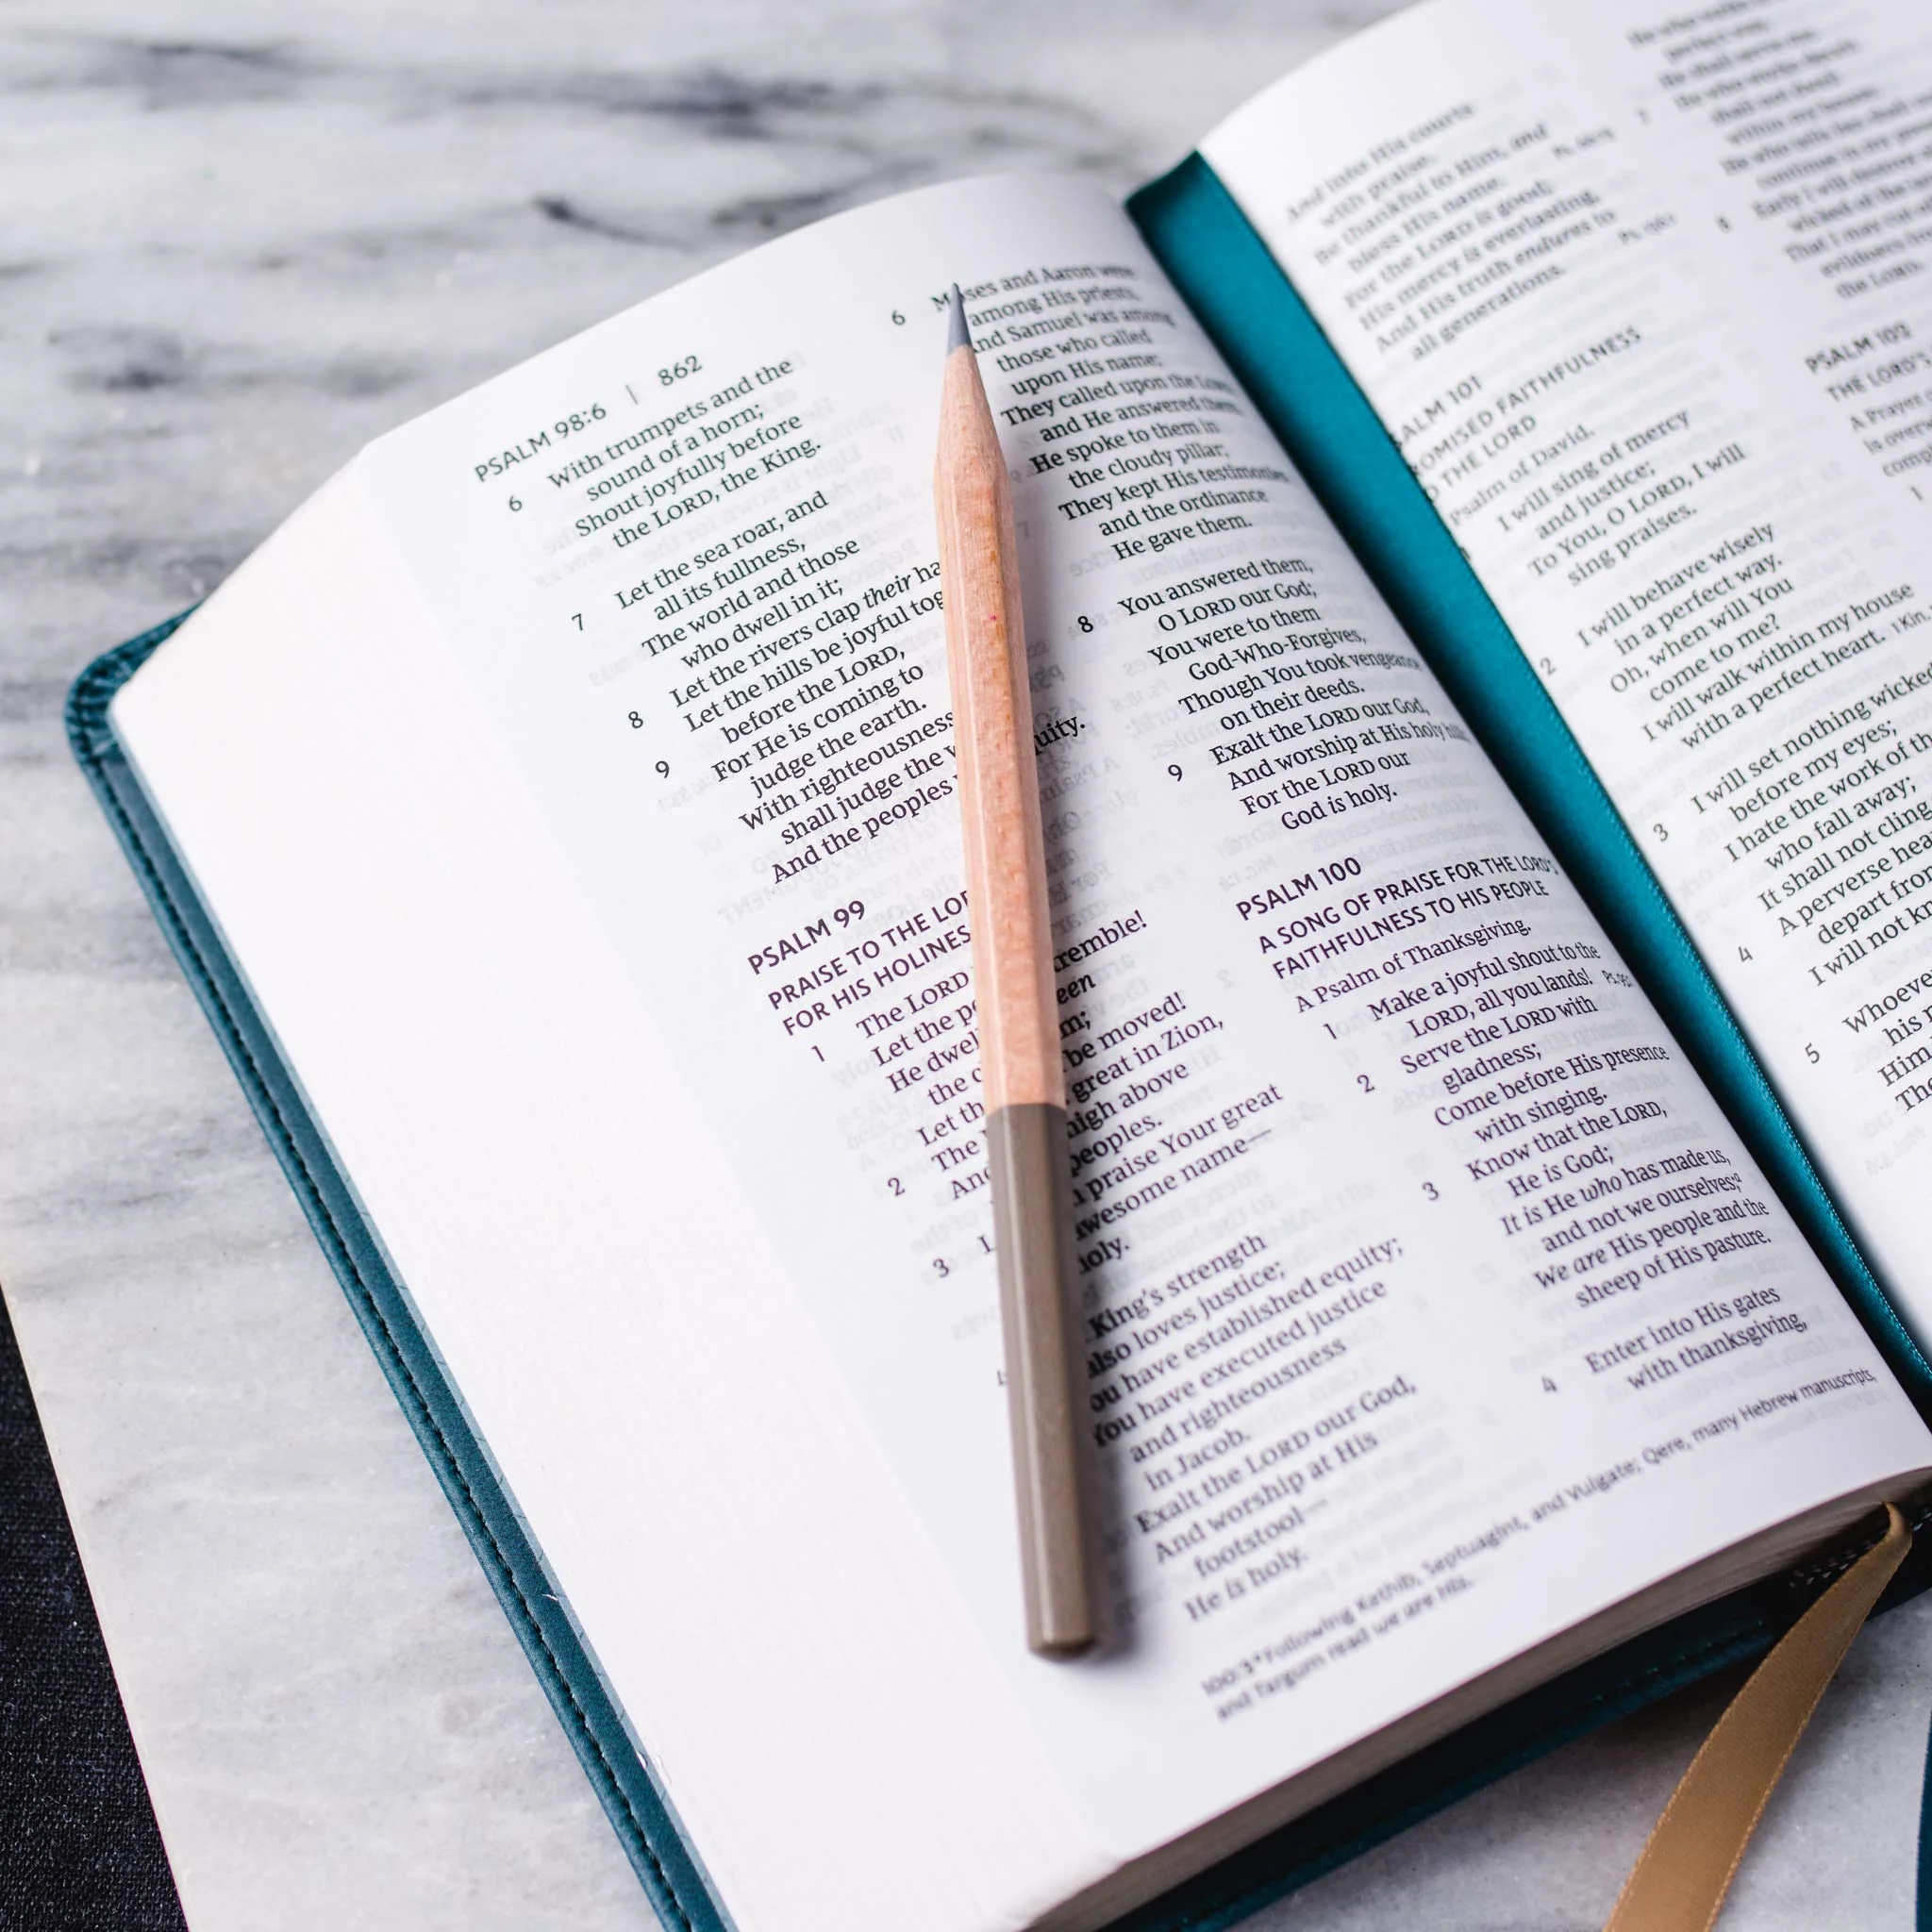 PSALM 98:6 | 862
6 With trumpets and the
sound of a horn;
Shout joyfully before
the LORD, the King.
7 Let the sea roar, and
all its fullness,
The world and those
who dwell in it;
8 Let the rivers clap their ha
Let the hills be joyful tog
before the LORD,
9 For He is coming to
judge the earth.
With righteousness
shall judge the
And the peoples uity.
PSALM 99
PRAISE TO THE LOR
FOR HIS HOLINESS
1 The LORD tremble!
Let the pe
He dwel een
the c m;
Let th be moved!
2 The great in Zion,
And high above
peoples.
3 L praise Your great
awesome name—
holy.
4 King's strength
also loves justice;
You have established equity;
You have executed justice
and righteousness
in Jacob.
Exalt the LORD our God,
And worship at His
footstool—
He is holy.
6 M ses and Aaron were
among His priests,
nd Samuel was among
those who called
upon His name;
They called upon the LORD
and He answered them.
He spoke to them in
the cloudy pillar;
They kept His testimonies
and the ordinance
He gave them.
8 You answered them,
O LORD our God;
You were to them
God-Who-Forgives,
Though You took vengeance
on their deeds.
9 Exalt the LORD our God,
And worship at His holy hill;
For the LORD our
God is holy.
PSALM 100
A SONG OF PRAISE FOR THE LORD'S
FAITHFULNESS TO HIS PEOPLE
A Psalm of Thanksgiving.
1 Make a joyful shout to the
LORD, all you lands!
2 Serve the LORD with
gladness;
Come before His presence
with singing.
3 Know that the LORD,
He is God;
It is He who has made us,
and not we ourselves;a
We are His people and the
sheep of His pasture.
4 Enter into His gates
with thanksgiving,
100:3 a Following Kethib, Septuagint, and Vulgate; Qere, many Hebrew manuscripts,
and Targum read we are His.
And into His courts
with praise.
be thankful to Him, and
bless His name.
For the LORD is good;
His mercy is everlasting,
And His truth endures to
all generations.
ALM 101
ROMISED FAITHFULNESS
O THE LORD
Psalm of David.
1 I will sing of mercy
and justice;
To You, O LORD, I will
sing praises.
2 I will behave wisely
in a perfect way.
Oh, when will You
come to me?
I will walk within my house
with a perfect heart. 1 Kin.
3 I will set nothing wicked
before my eyes;
I hate the work of th
who fall away;
It shall not cling
4 A perverse hea
depart from
I will not kn
5 Whoeve
his n
Him
Th
7
He shall serve me.
He who works
shall not dwell
within my house;
He who tells lies shall
continue in my
8 Early I will destroy
wicked of the
That I may cut
evildoers
the LORD.
PSALM 102
THE LORD'S
A Prayer
is over
compl
1